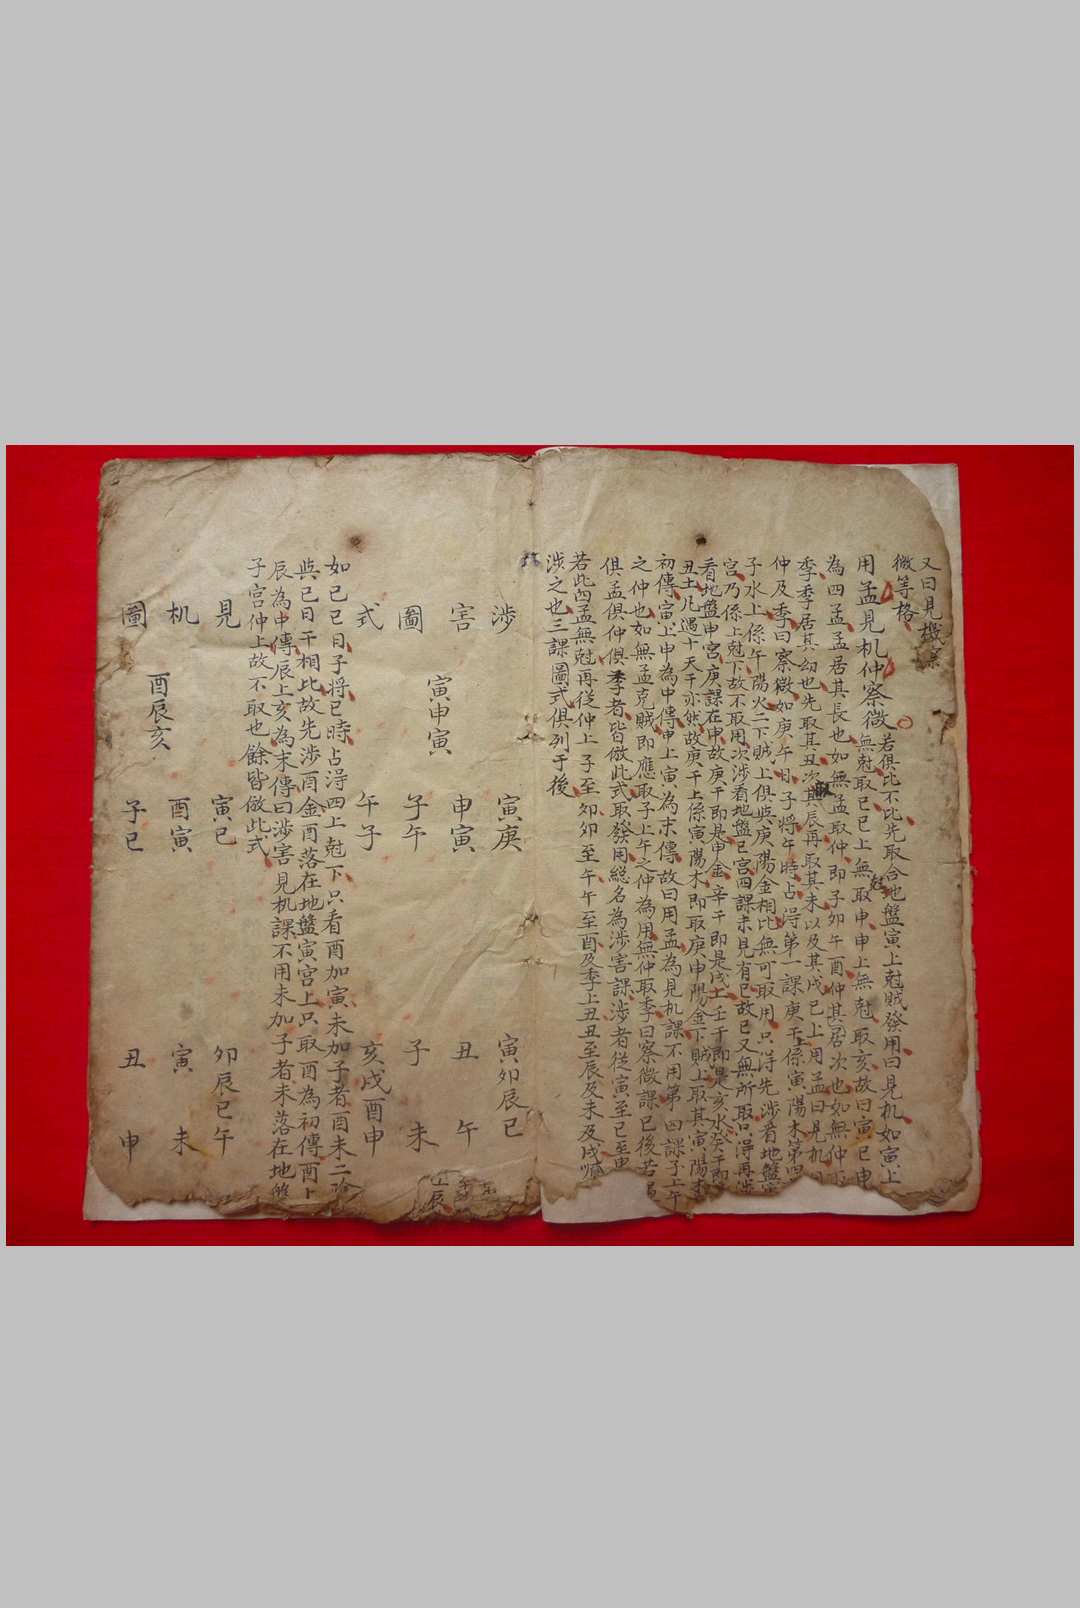 又曰見機察
微等格
用孟見机仲察微若俱比不比先取合地盤寅上尅賊發用曰見机如寅上
無尅取巳巳上無取申申上無尅取亥故曰寅巳申
為四孟孟居其長也如無孟取仲即子卯午酉仲其居次也如無仲
季季居其幼也先取其丑次其辰再取其未以及其戌已上用孟曰見机
仲及季曰察微如庚午日子將午時占淂第一課庚干係寅陽木第四
子水上係午陽火二下賊上俱與庚陽金相比無可取用只淂先涉看地盤
宮乃係上尅下故不取用次涉看地盤巳宮四課未見有巳故巳又無所取只淂再涉
看地盤申宮庚課在申故庚干即是申金辛干即是戌土壬干即是亥水癸干即
丑土凡遇十天干亦然故庚干上係寅陽木即取庚申陽金下賊上取其寅陽木
初傳寅上申為中傳申上寅為末傳故曰用孟為見机課不用第四課子上午
之仲也如無孟克賊即應取子上午之仲為用無仲取季曰察微課已後若
俱孟俱仲俱季者皆倣此式取發用総名為涉害課涉者從寅至巳至申
若此四孟無尅再從仲上子至卯卯至午午至酉及季上丑丑至辰及未及戌順
涉之也三課圖式俱列于後
涉 寅庚 寅卯辰巳
害 寅申寅 申寅 丑 午
圖 子午 子 未
式 午子 亥戌酉申
如己巳日子將巳時占淂四上尅下只看酉加寅未加子者酉未二陰
與己日干相比故先涉酉金酉落在地盤寅宮上只取酉為初傳酉上
辰為中傳辰上亥為末傳曰涉害見机課不用未加子者未落在地盤
子宮仲上故不取也餘皆倣此式
見 寅巳 卯辰巳午
机 酉辰亥 酉寅 寅 未
圖 子巳 丑 申